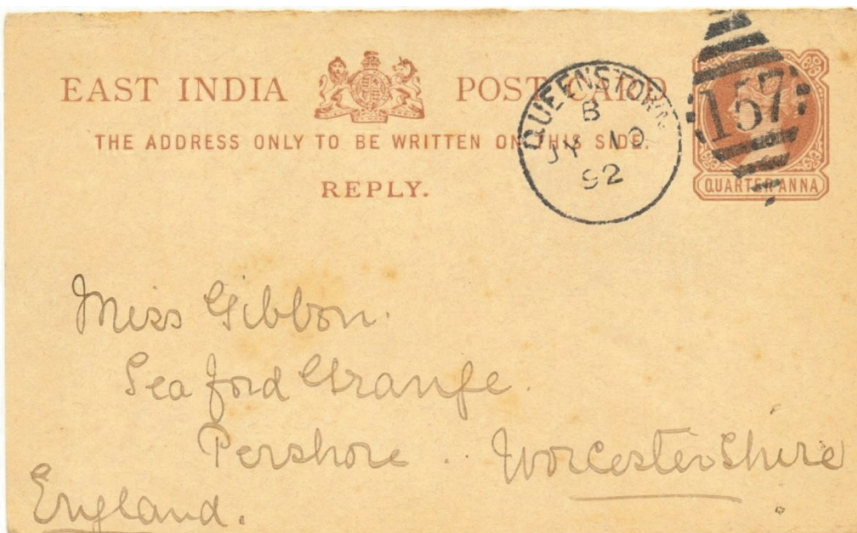 EAST INDIA POST CARD
THE ADDRESS ONLY TO BE WRITTEN ON THIS SIDE.
REPLY.
QUEENSTOWN
B
JY 10
92
157
QUARTER ANNA
Miss Gibbon.
Seaford Grange.
Pershore .. Worcestershire
England.